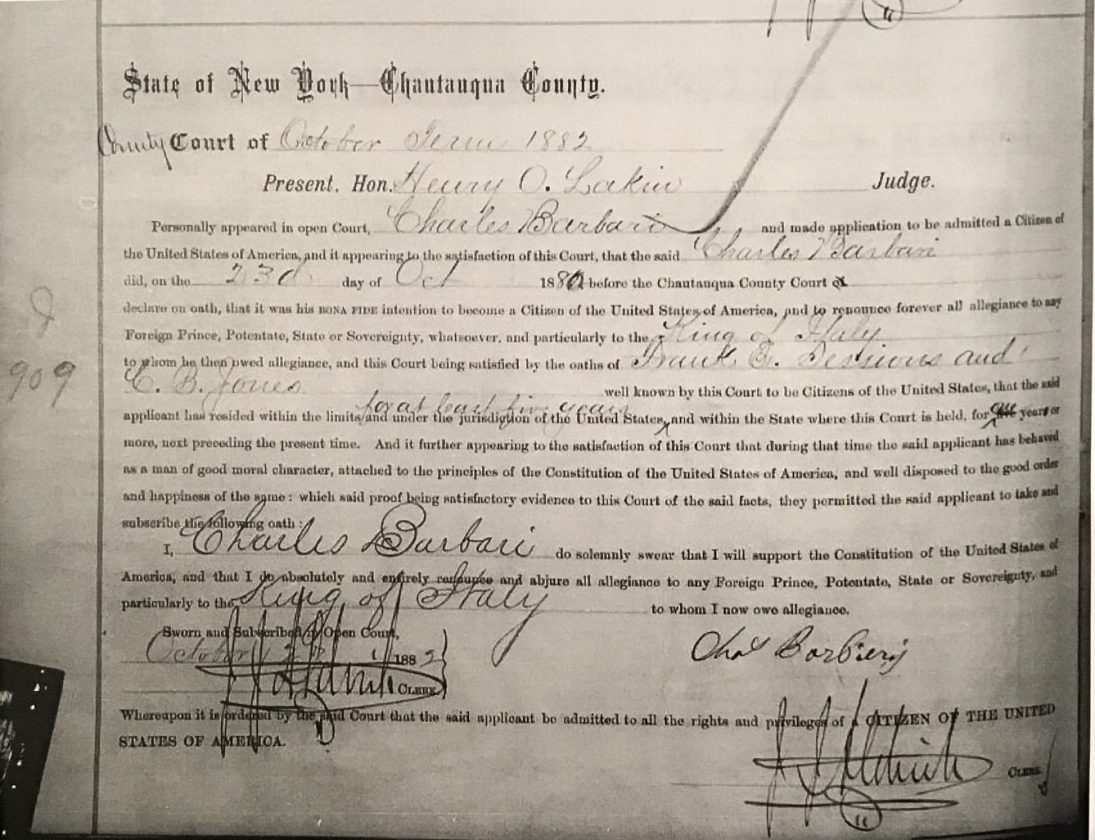 State of New York—Chautauqua County.
County Court of October Term 1882
Present, Hon. Henry O. Lakin Judge.
Personally appeared in open Court, Charles Barbari and made application to be admitted a Citizen of
the United States of America, and it appearing to the satisfaction of this Court, that the said Charles Barbari
did, on the 23d day of Oct 1880 before the Chautauqua County Court
declare on oath, that it was his BONA FIDE intention to become a Citizen of the United States of America, and to renounce forever all allegiance to any
Foreign Prince, Potentate, State or Sovereignty, whatsoever, and particularly to the King of Italy
to whom he then owed allegiance, and this Court being satisfied by the oaths of Frank E. Sessions and
C. B. Jones well known by this Court to be Citizens of the United States, that the said
for at least five years
applicant has resided within the limits and under the jurisdiction of the United States, and within the State where this Court is held, for years or
more, next preceding the present time. And it further appearing to the satisfaction of this Court that during that time the said applicant has behaved
909
as a man of good moral character, attached to the principles of the Constitution of the United States of America, and well disposed to the good order
and happiness of the same: which said proof being satisfactory evidence to this Court of the said facts, they permitted the said applicant to take and
subscribe the following oath:
I, Charles Barbari do solemnly swear that I will support the Constitution of the United States of
America, and that I do absolutely and entirely renounce and abjure all allegiance to any Foreign Prince, Potentate, State or Sovereignty, and
particularly to the King of Italy to whom I now owe allegiance.
Sworn and Subscribed in Open Court,
October 1882 Chas Barbieri
CLERK
Whereupon it is ordered by the said Court that the said applicant be admitted to all the rights and privileges of a CITIZEN OF THE UNITED
STATES OF AMERICA.
CLERK